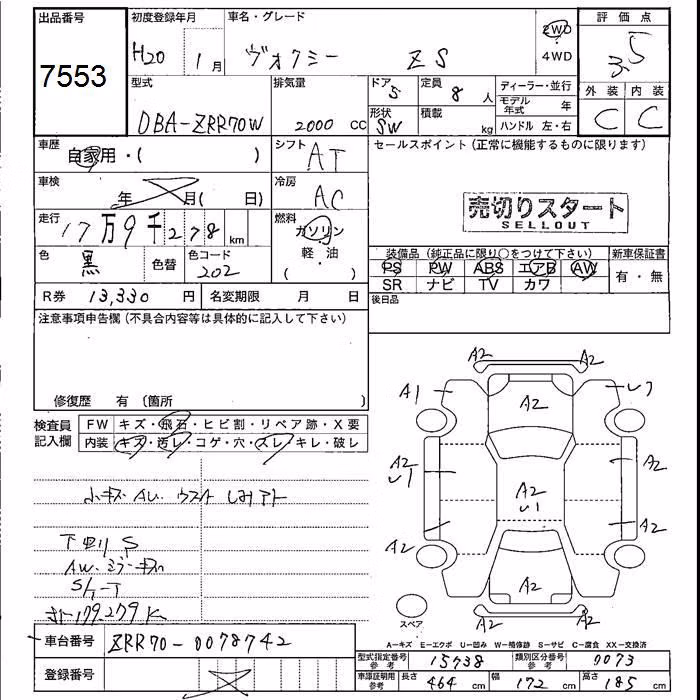 出品番号
7553
初度登録年月
H20 1月
車名・グレード
ヴォクシー ZS
2WD
4WD
評価点
3.5
型式
DBA-ZRR70W
排気量
2000 cc
ドア 5
定員 8 人
形状 SW
積載 kg
ディーラー・並行
モデル年式 年
ハンドル 左・右
外装 内装
C C
車歴
自家用・( )
シフト
AT
セールスポイント(正常に機能するものに限ります)
車検
年 月( 日)
冷房
AC
売切りスタート
SELLOUT
走行
17万9千278km
燃料
ガソリン
軽・油
( )
色
黒
色替
色コード
202
装備品(純正品に限り○をつけて下さい)
PS PW ABS エアB AW
SR ナビ TV カワ
新車保証書
有・無
R券 13,330 円
名変期限 月 日
後日品
注意事項申告欄(不具合内容等は具体的に記入して下さい)
修復歴 有(箇所 )
検査員
記入欄
FW キズ・飛石・ヒビ割・リペア跡・X要
内装 キズ・汚レ・コゲ・穴・スレ・キレ・破レ
小キズ AU.
下回りS
179.279K
A2 A2
A1 A2
A2 A2
U1
A2
U1
A2 A2
A2
A2 A2
スペア
A-キズ E-エクボ U-凹み W-補修跡 S-サビ C-腐食 XX-交換済
車台番号 ZRR70-0078742
登録番号
型式指定番号 参考 15738
類別区分番号 参考 0073
車庫証明用 参考 長さ 464 cm 幅 172 cm 高さ 185 cm